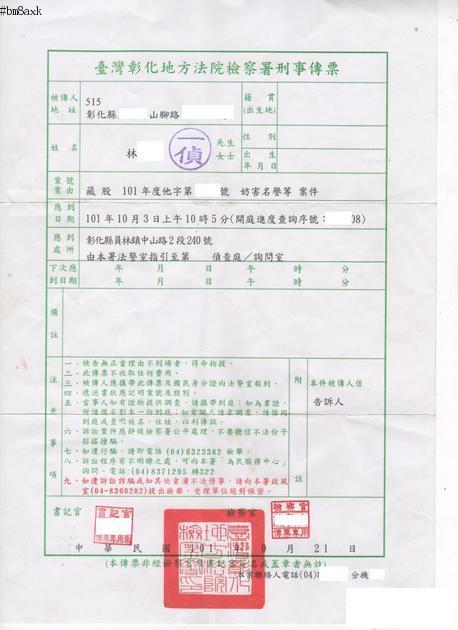 #bm8axk
臺灣彰化地方法院檢察署刑事傳票
被傳人地址 515 彰化縣 山腳路
籍貫(出生地)
姓名 林 先生 女士
一偵
性別
出生年月日
案號案由 藏股 101年度他字第 號 妨害名譽等 案件
應到日期 101年10月3日上午10時5分(開庭進度查詢序號: 08)
應到處所 彰化縣員林鎮中山路2段240號
由本署法警室指引至第 偵查庭/詢問室
下次應到日期 年 月 日 午 時 分
年 月 日 午 時 分
備註
注意事項
一、被告無正當理由不到場者,得命拘提。
二、此傳票不收取任何費用。
三、被傳人應攜帶此傳票及國民身分證向法警室報到。
四、遞送書狀應記明案號及股別。
五、當事人如有證物提供調查,請攜帶到庭;如為書證,
併請備妥影本一份到庭;如有證人請求調查,請陪同
到庭或查明姓名、住址,以利傳訊。
六、訴訟案件應靜候檢察署公平處理,不要聽信不法份子
招搖撞騙。
七、如遭行騙,請即電話(04)8323382 檢舉。
八、訴訟程序有不明瞭之處,可向本署「為民服務中心」
詢問,電話:(04)8371295 轉322
九、如遭訴訟詐騙或知其他貪瀆不法情事,請向本署政風
室(04-8360282)提出檢舉,受理單位絕對保密。
附註
本件被傳人係
告訴人
書記官
書記官
傳票專用章
檢察官
檢察官
傳票專用
中華民國 101 年 9 月 21 日
(本傳票非經檢察官及書記官簽名或蓋章者無效)
本案聯絡人電話(04) 分機